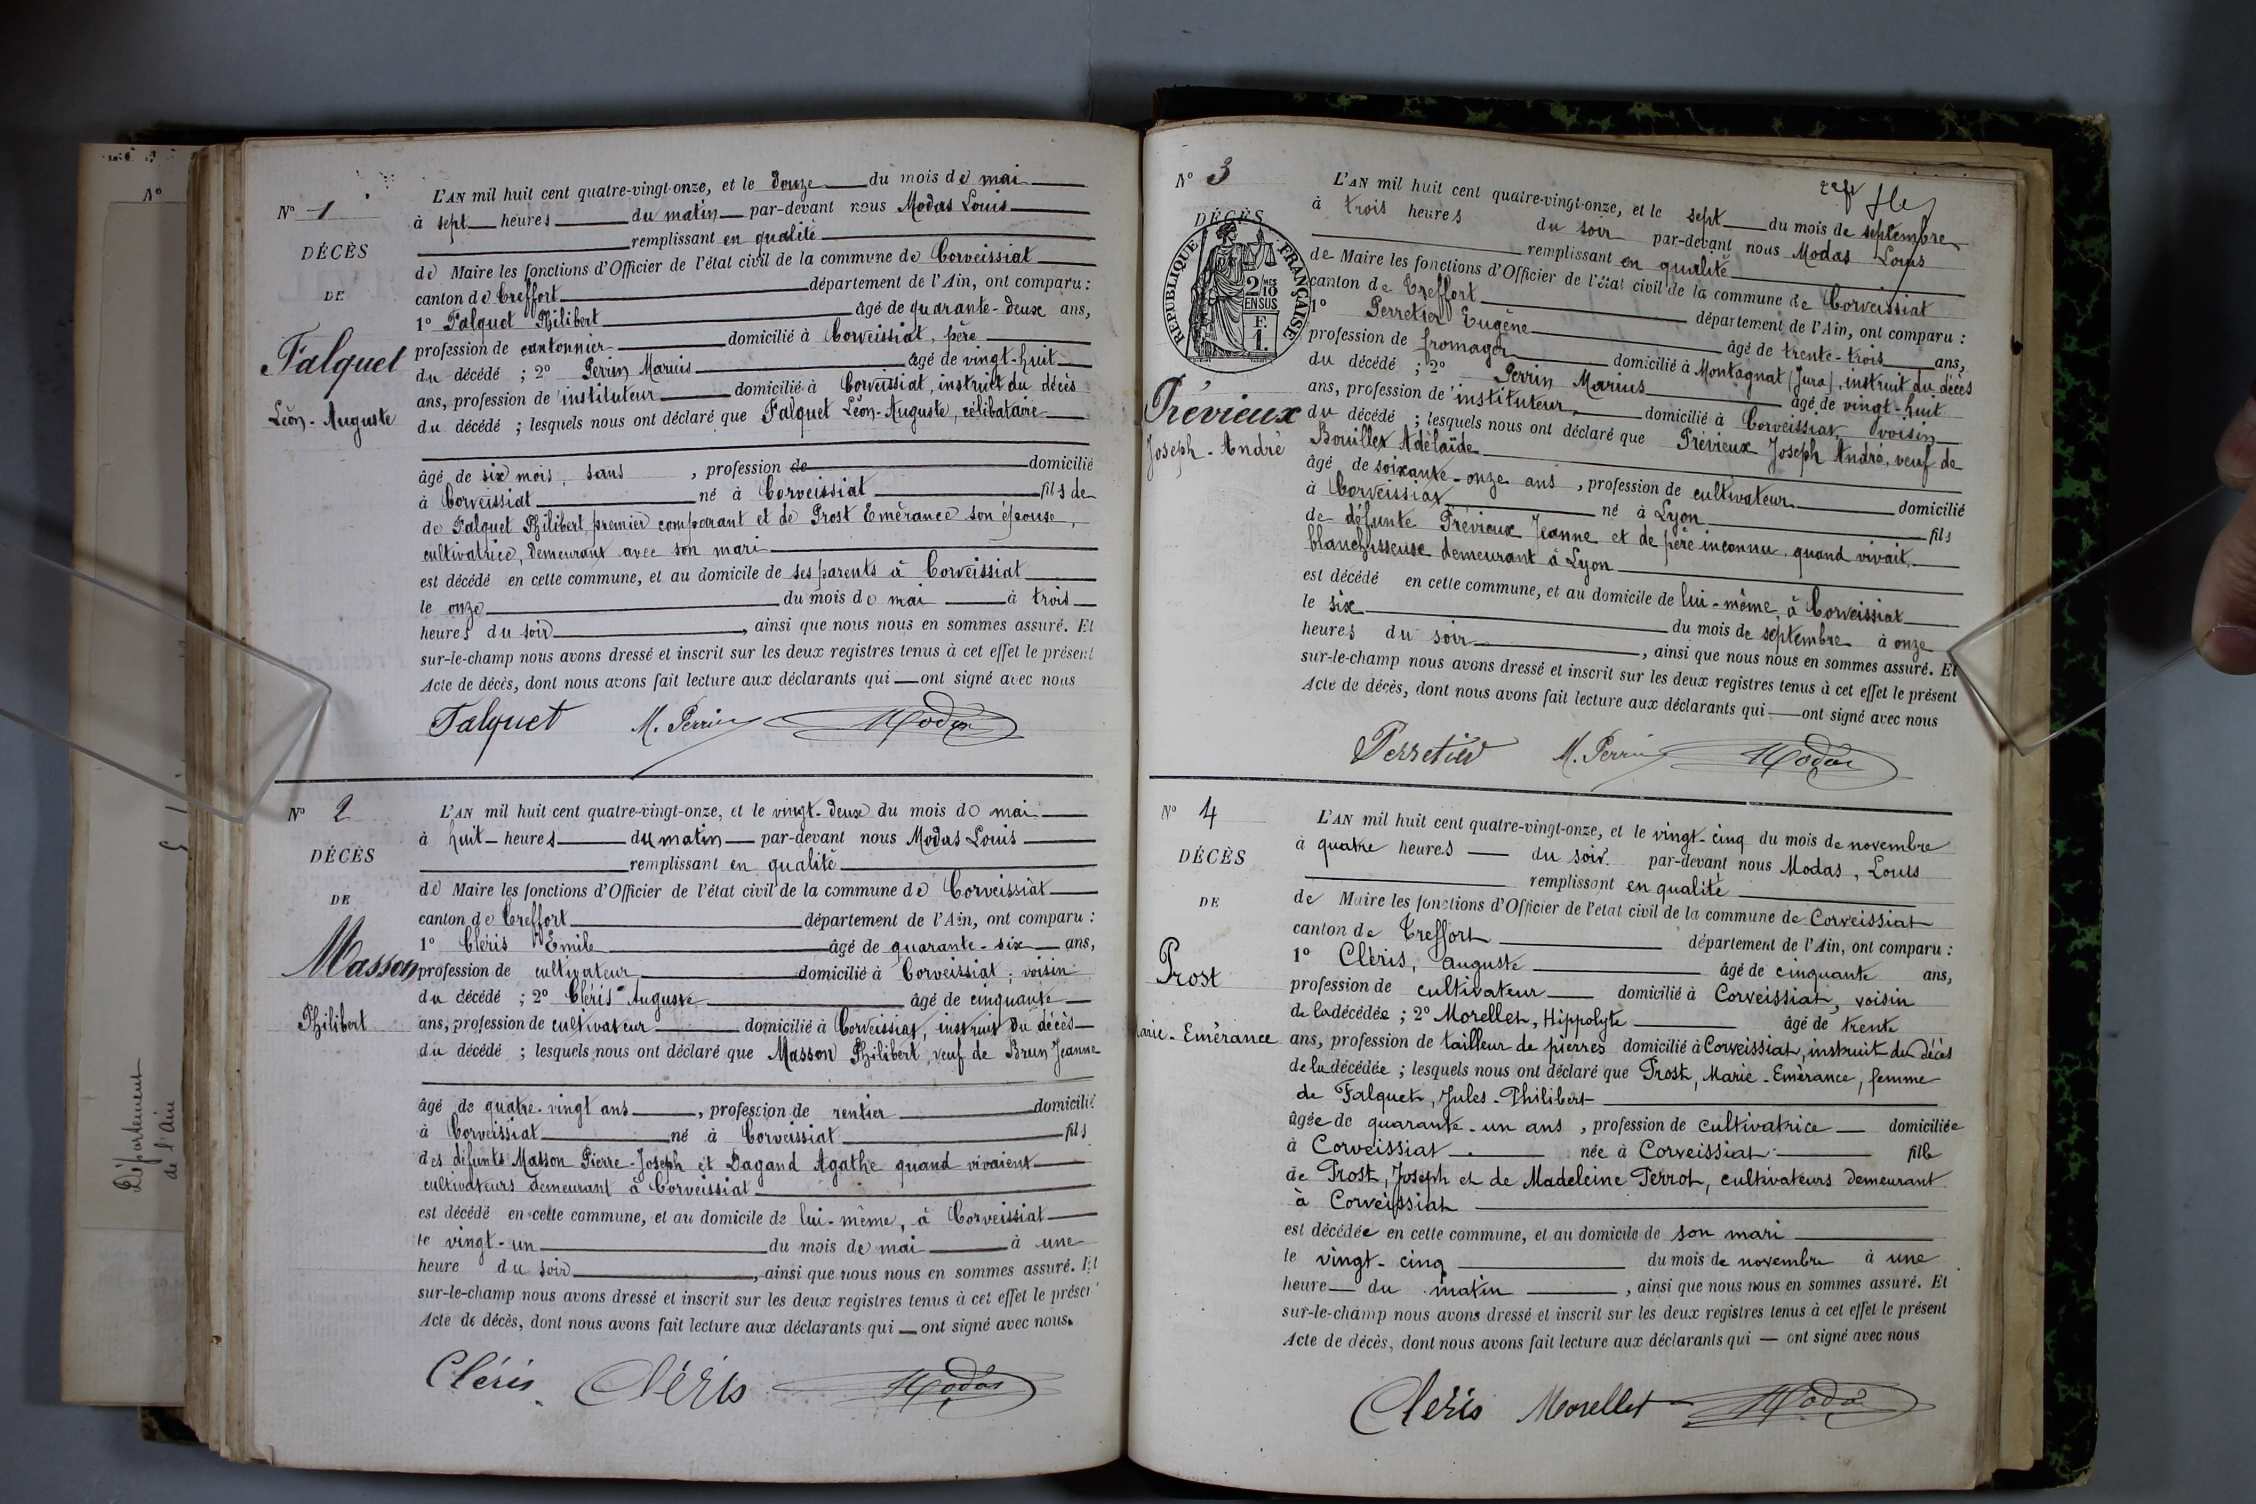 Nº
Département
de l'Ain
Nº 1
DÉCÈS
DE
Falquet
Léon-Auguste
L'AN mil huit cent quatre-vingt-onze, et le douze du mois de mai
à sept heures du matin par-devant nous Modas Louis
remplissant en qualité
de Maire les fonctions d'Officier de l'état civil de la commune de Corveissiat
canton de Treffort département de l'Ain, ont comparu :
1º Falquet Philibert âgé de quarante-deux ans,
profession de cantonnier domicilié à Corveissiat, père
du décédé ; 2º Perrin Marius âgé de vingt-huit
ans, profession de instituteur domicilié à Corveissiat, instruit du décès
du décédé ; lesquels nous ont déclaré que Falquet Léon-Auguste, célibataire
âgé de six mois, sans , profession de domicilié
à Corveissiat né à Corveissiat fils de
de Falquet Philibert premier comparant et de Prost Emérance son épouse,
cultivatrice, demeurant avec son mari
est décédé en cette commune, et au domicile de ses parents à Corveissiat
le onze du mois de mai à trois
heures du soir , ainsi que nous nous en sommes assuré. Et
sur-le-champ nous avons dressé et inscrit sur les deux registres tenus à cet effet le présent
Acte de décès, dont nous avons fait lecture aux déclarants qui ont signé avec nous
Falquet M. Perrin Modas
Nº 2
DÉCÈS
DE
Masson
Philibert
L'AN mil huit cent quatre-vingt-onze, et le vingt-deux du mois de mai
à huit heures du matin par-devant nous Modas Louis
remplissant en qualité
de Maire les fonctions d'Officier de l'état civil de la commune de Corveissiat
canton de Treffort département de l'Ain, ont comparu :
1º Cléris Emile âgé de quarante-six ans,
profession de cultivateur domicilié à Corveissiat, voisin
du décédé ; 2º Cléris Auguste âgé de cinquante
ans, profession de cultivateur domicilié à Corveissiat, instruit du décès
du décédé ; lesquels nous ont déclaré que Masson Philibert, veuf de Brun Jeanne
âgé de quatre-vingt ans , profession de rentier domicilié
à Corveissiat né à Corveissiat fils
des défunts Masson Pierre-Joseph et Dagand Agathe quand vivaient
cultivateurs demeurant à Corveissiat
est décédé en cette commune, et au domicile de lui-même, à Corveissiat
le vingt-un du mois de mai à une
heure du soir , ainsi que nous nous en sommes assuré. Et
sur-le-champ nous avons dressé et inscrit sur les deux registres tenus à cet effet le présent
Acte de décès, dont nous avons fait lecture aux déclarants qui ont signé avec nous.
Cléris Cléris Modas
Nº 3
DÉCÈS
RÉPUBLIQUE FRANÇAISE
2/10
EN SUS
F.
1.
Prévieux
Joseph-André
L'AN mil huit cent quatre-vingt-onze, et le sept du mois de septembre
à trois heures du soir par-devant nous Modas Louis
remplissant en qualité
de Maire les fonctions d'Officier de l'état civil de la commune de Corveissiat
canton de Treffort département de l'Ain, ont comparu :
1º Perretier Eugène âgé de trente-trois ans,
profession de fromager domicilié à Montagnat (Jura), instruit du décès
du décédé ; 2º Perrin Marius âgé de vingt-huit
ans, profession de instituteur, domicilié à Corveissiat, voisin
du décédé ; lesquels nous ont déclaré que Prévieux Joseph André, veuf de
Bouillet Adélaïde
âgé de soixante-onze ans , profession de cultivateur domicilié
à Corveissiat né à Lyon fils
de défunte Prévieux Jeanne et de père inconnu, quand vivait
blanchisseuse demeurant à Lyon
est décédé en cette commune, et au domicile de lui-même à Corveissiat
le six du mois de septembre à onze
heures du soir , ainsi que nous nous en sommes assuré. Et
sur-le-champ nous avons dressé et inscrit sur les deux registres tenus à cet effet le présent
Acte de décès, dont nous avons fait lecture aux déclarants qui ont signé avec nous
Perretier M. Perrin Modas
Nº 4
DÉCÈS
DE
Prost
arie-Emérance
L'AN mil huit cent quatre-vingt-onze, et le vingt-cinq du mois de novembre
à quatre heures du soir par-devant nous Modas, Louis
remplissant en qualité
de Maire les fonctions d'Officier de l'état civil de la commune de Corveissiat
canton de Treffort département de l'Ain, ont comparu :
1º Cléris, auguste âgé de cinquante ans,
profession de cultivateur domicilié à Corveissiat, voisin
de la décédée ; 2º Morellet, Hippolyte âgé de trente
ans, profession de tailleur de pierres domicilié à Corveissiat, instruit du décès
de la décédée ; lesquels nous ont déclaré que Prost, Marie-Emérance, femme
de Falquet, Jules-Philibert
âgée de quarante-un ans , profession de cultivatrice domiciliée
à Corveissiat née à Corveissiat fille
de Prost, Joseph et de Madeleine Perrot, cultivateurs demeurant
à Corveissiat
est décédée en cette commune, et au domicile de son mari
le vingt-cinq du mois de novembre à une
heure du matin , ainsi que nous nous en sommes assuré. Et
sur-le-champ nous avons dressé et inscrit sur les deux registres tenus à cet effet le présent
Acte de décès, dont nous avons fait lecture aux déclarants qui ont signé avec nous
Cléris Morellet Modas